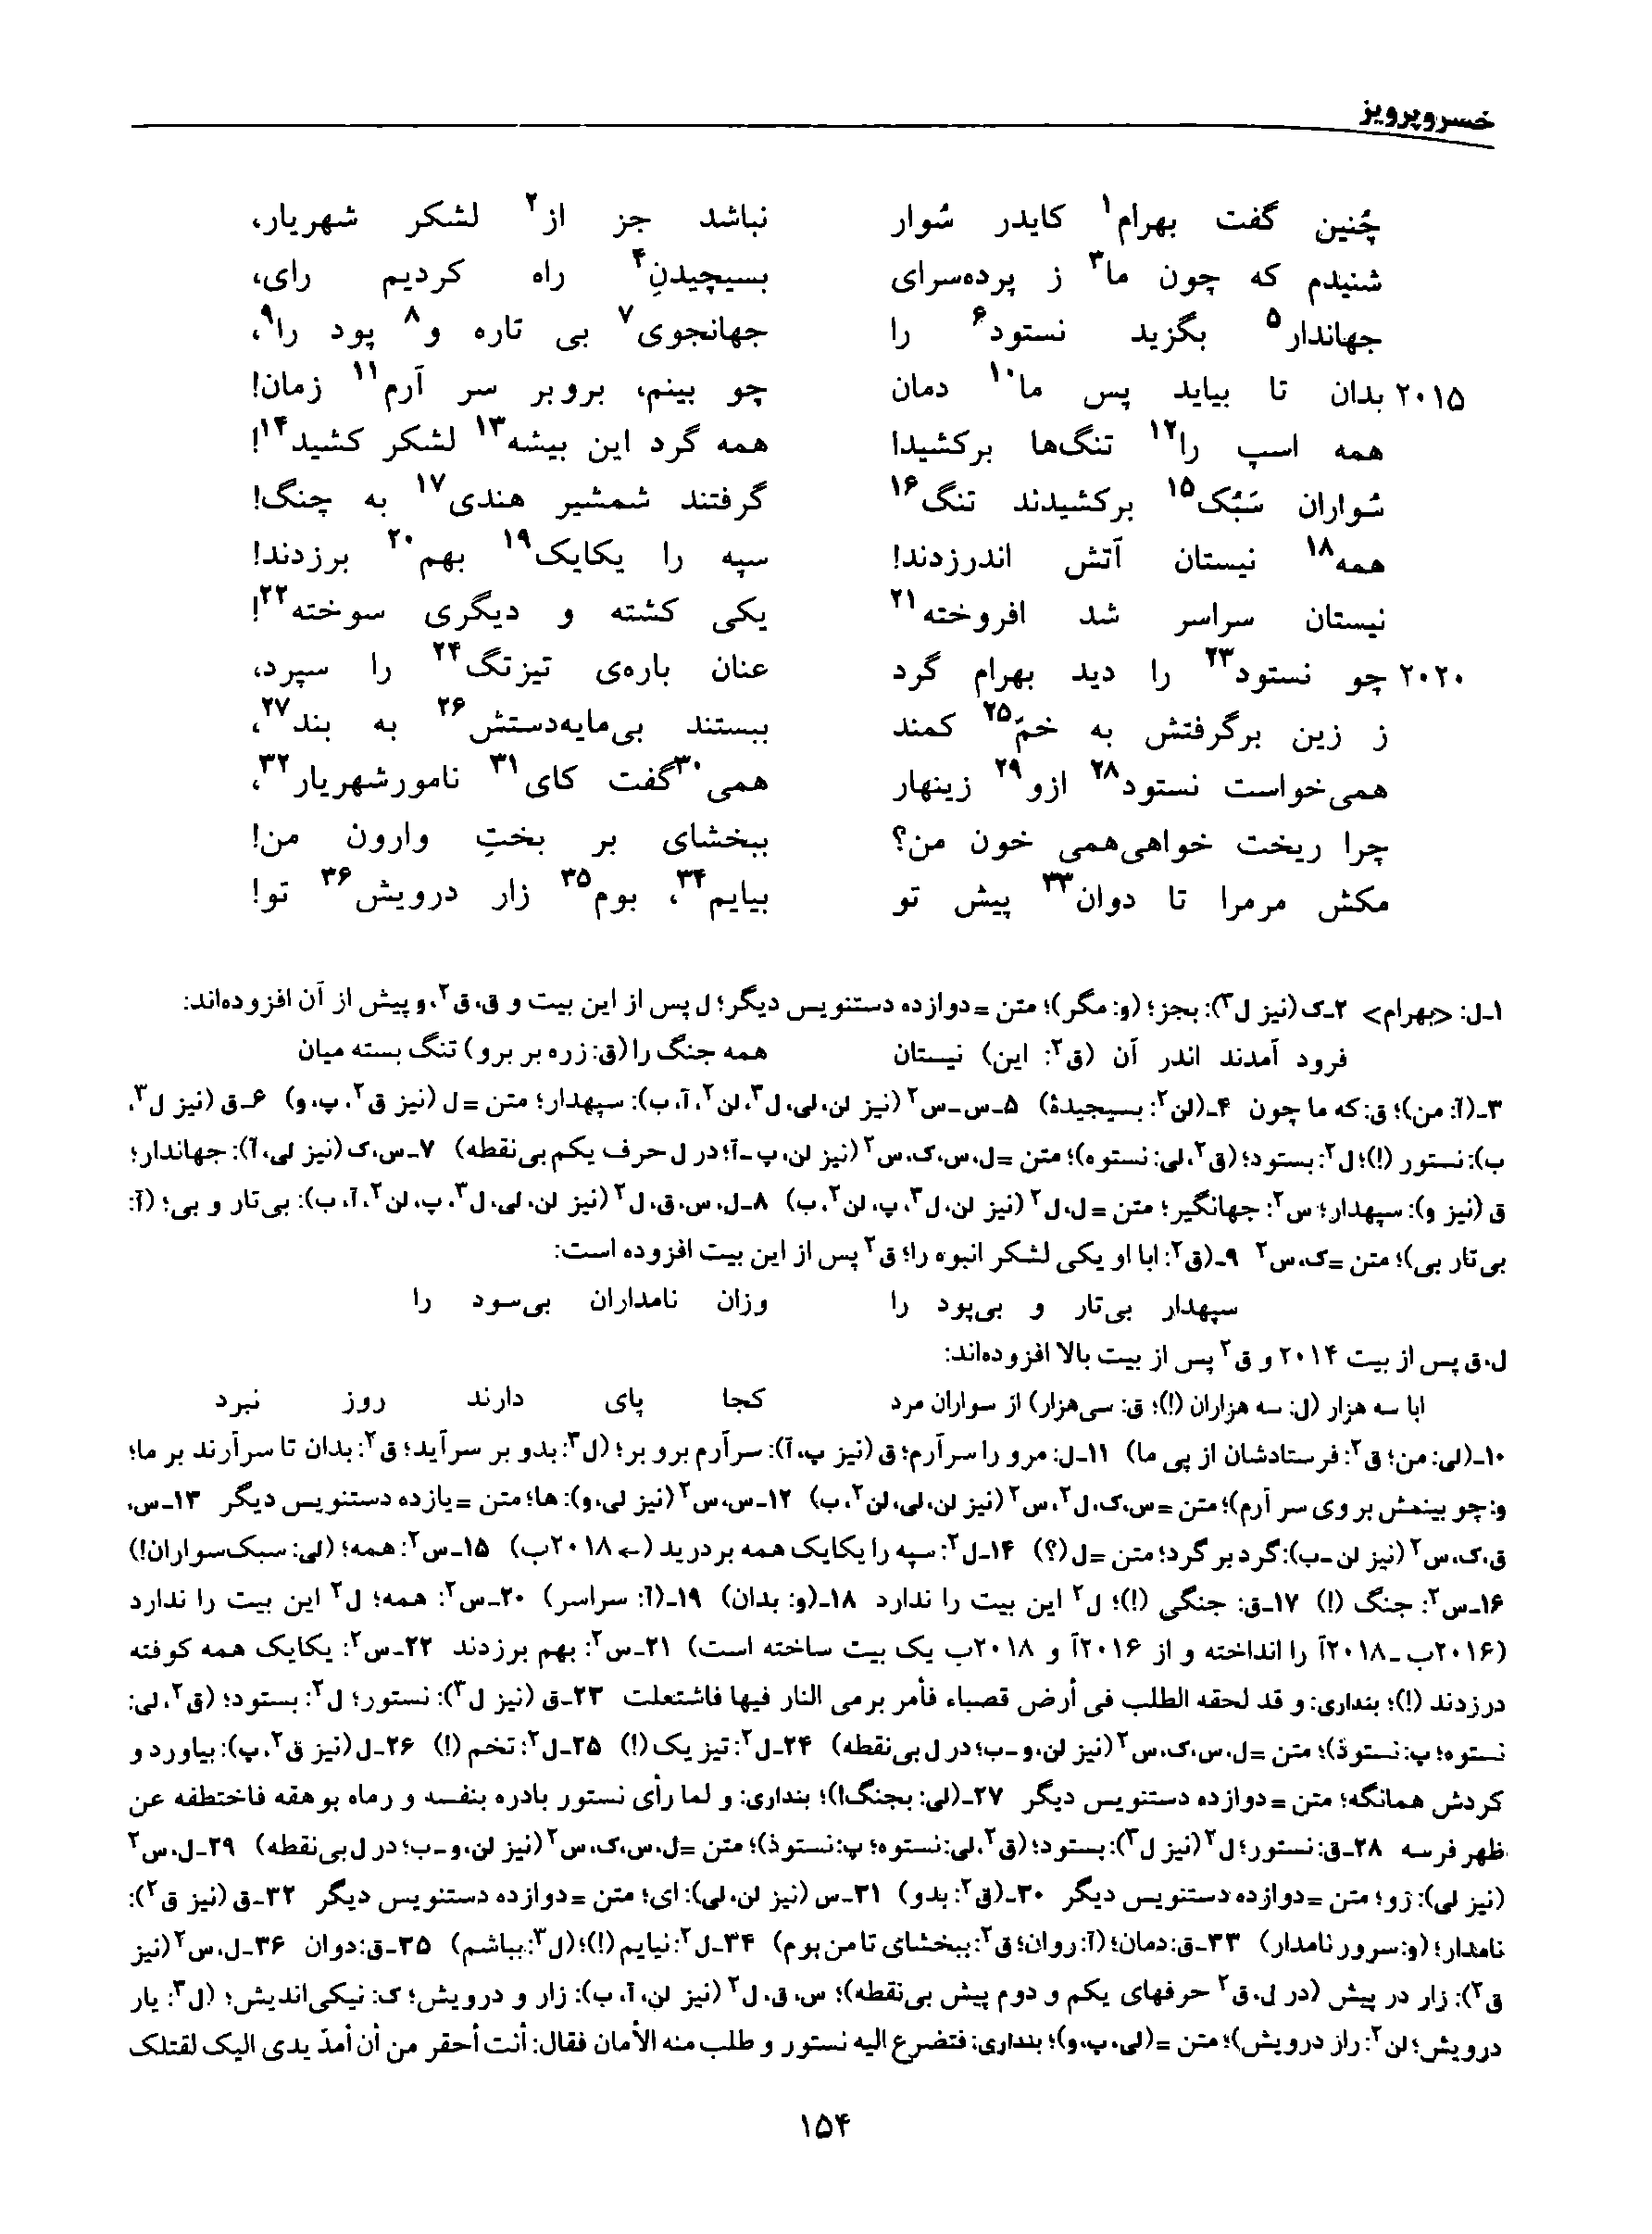 خسرو پرویز
چُنین گفت بهرام۱ کایدر سُوار نباشد جز از۲ لشکر شهریار،
شنیدم که چون ما۳ ز پرده‌سرای بسیچیدنِ۴ راه کردیم رای،
جهاندار۵ بگزید نستود۶ را جهانجوی۷ بی تاره و۸ پود را۹،
۲۰۱۵ بدان تا بیاید پس ما۱۰ دمان چو بینم، بروبر سر آرم۱۱ زمان!
همه اسپ را۱۲ تنگ‌ها برکشید! همه گرد این بیشه۱۳ لشکر کشید۱۴!
سُواران سَبُک۱۵ برکشیدند تنگ۱۶ گرفتند شمشیر هندی۱۷ به چنگ!
همه۱۸ نیستان آتش اندرزدند! سپه را یکایک۱۹ بهم۲۰ برزدند!
نیستان سراسر شد افروخته۲۱ یکی کشته و دیگری سوخته۲۲!
۲۰۲۰ چو نستود۲۳ را دید بهرام گرد عنان باره‌ی تیزتگ۲۴ را سپرد،
ز زین برگرفتش به خمّ۲۵ کمند ببستند بی‌مایه‌دستش۲۶ به بند۲۷،
همی‌خواست نستود۲۸ ازو۲۹ زینهار همی۳۰گفت کای۳۱ نامورشهریار۳۲،
چرا ریخت خواهی‌همی خون من؟ ببخشای بر بختِ وارون من!
مکش مرمرا تا دوان۳۳ پیش تو بیایم۳۴، بوم۳۵ زار درویش۳۶ تو!
۱ـ ل: <بهرام> ۲ـ ک (نیز ل۳): بجز؛ (و: مگر)؛ متن = دوازده دستنویس دیگر؛ ل پس از این بیت و ق، ق۲، و پیش از آن افزوده‌اند:
فرود آمدند اندر آن (ق۲: این) نیستان همه جنگ را (ق: زره بر برو) تنگ بسته میان
۳ـ (آ: من)؛ ق: که ما چون ۴ـ (لن۲: بسیجیدهٔ) ۵ـ س-س۲ (نیز لن، لی، ل۳، لن۲، آ، ب): سپهدار؛ متن = ل (نیز ق۲، پ، و) ۶ـ ق (نیز ل۳،
ب): نستور (!)؛ ل۲: بستود؛ (ق۲، لی: نستوه)؛ متن = ل، س، ک، س۲ (نیز لن، پ-آ؛ در ل حرف یکم بی‌نقطه) ۷ـ س، ک (نیز لی، آ): جهاندار؛
ق (نیز و): سپهدار؛ س۲: جهانگیر؛ متن = ل، ل۲ (نیز لن، ل۳، پ، لن۲، ب) ۸ـ ل، س، ق، ل۲ (نیز لن، لی، ل۳، پ، لن۲، آ، ب): بی‌تار و بی؛ (آ:
بی‌تار بی)؛ متن = ک، س۲ ۹ـ (ق۲: ابا او یکی لشکر انبوه را؛ ق۲ پس از این بیت افزوده است:
سپهدار بی‌تار و بی‌پود را وزان نامداران بی‌سود را
ل، ق پس از بیت ۲۰۱۴ و ق۲ پس از بیت بالا افزوده‌اند:
ابا سه هزار (ل: سه هزاران (!)؛ ق: سی‌هزار) از سواران مرد کجا پای دارند روز نبرد
۱۰ـ (لی: من؛ ق۲: فرستادشان از پی ما) ۱۱ـ ل: مرو را سرآرم؛ ق (نیز پ، آ): سرآرم برو بر؛ (ل۳: بدو بر سرآید؛ ق۲: بدان تا سرآرند بر ما؛
و: چو بینمش بر وی سر آرم)؛ متن = س، ک، ل۲، س۲ (نیز لن، لی، لن۲، ب) ۱۲ـ س، س۲ (نیز لی، و): ها؛ متن = یازده دستنویس دیگر ۱۳ـ س،
ق، ک، س۲ (نیز لن-ب): گرد بر گرد؛ متن = ل (؟) ۱۴ـ ل۲: سپه را یکایک همه بردرید (← ۲۰۱۸ب) ۱۵ـ س۲: همه؛ (لی: سبک‌سواران!)
۱۶ـ س۲: جنگ (!) ۱۷ـ ق: جنگی (!)؛ ل۲ این بیت را ندارد ۱۸ـ (و: بدان) ۱۹ـ (آ: سراسر) ۲۰ـ س۲: همه؛ ل۲ این بیت را ندارد
(۲۰۱۶ب-۲۰۱۸آ را انداخته و از ۲۰۱۶آ و ۲۰۱۸ب یک بیت ساخته است) ۲۱ـ س۲: بهم برزدند ۲۲ـ س۲: یکایک همه کوفته
درزدند (!)؛ بنداری: و قد لحقه الطلب فی أرض قصباء فأمر برمی النار فیها فاشتعلت ۲۳ـ ق (نیز ل۳): نستور؛ ل۲: بستود؛ (ق۲، لی:
نستوه؛ پ: نستوذ)؛ متن = ل، س، ک، س۲ (نیز لن، و-ب؛ در ل بی‌نقطه) ۲۴ـ ل۲: تیز یک (!) ۲۵ـ ل۲: تخم (!) ۲۶ـ ل (نیز ق۲، پ): بیاورد و
کردش همانگه؛ متن = دوازده دستنویس دیگر ۲۷ـ (لی: بجنگ!)؛ بنداری: و لما رأی نستور بادره بنفسه و رماه بوهقه فاختطفه عن
ظهر فرسه ۲۸ـ ق: نستور؛ ل۲ (نیز ل۳): بستود؛ (ق۲، لی: نستوه؛ پ: نستوذ)؛ متن = ل، س، ک، س۲ (نیز لن، و-ب؛ در ل بی‌نقطه) ۲۹ـ ل، س۲
(نیز لی): زو؛ متن = دوازده دستنویس دیگر ۳۰ـ (ق۲: بدو) ۳۱ـ س (نیز لن، لی): ای؛ متن = دوازده دستنویس دیگر ۳۲ـ ق (نیز ق۲):
نامدار؛ (و: سرور نامدار) ۳۳ـ ق: دمان؛ (آ: روان؛ ق۲: ببخشای تا من بوم) ۳۴ـ ل۲: نیایم (!)؛ (ل۳: بباشم) ۳۵ـ ق: دوان ۳۶ـ ل، س۲ (نیز
ق۲): زار در پیش (در ل، ق۲ حرفهای یکم و دوم پیش بی‌نقطه)؛ س، ق، ل۲ (نیز لن، آ، ب): زار و درویش؛ ک: نیکی‌اندیش؛ (ل۳: یار
درویش؛ لن۲: راز درویش)؛ متن = (لی، پ، و)؛ بنداری: فتضرع الیه نستور و طلب منه الأمان فقال: أنت أحقر من أن أمدّ یدی الیک لقتلک
۱۵۴